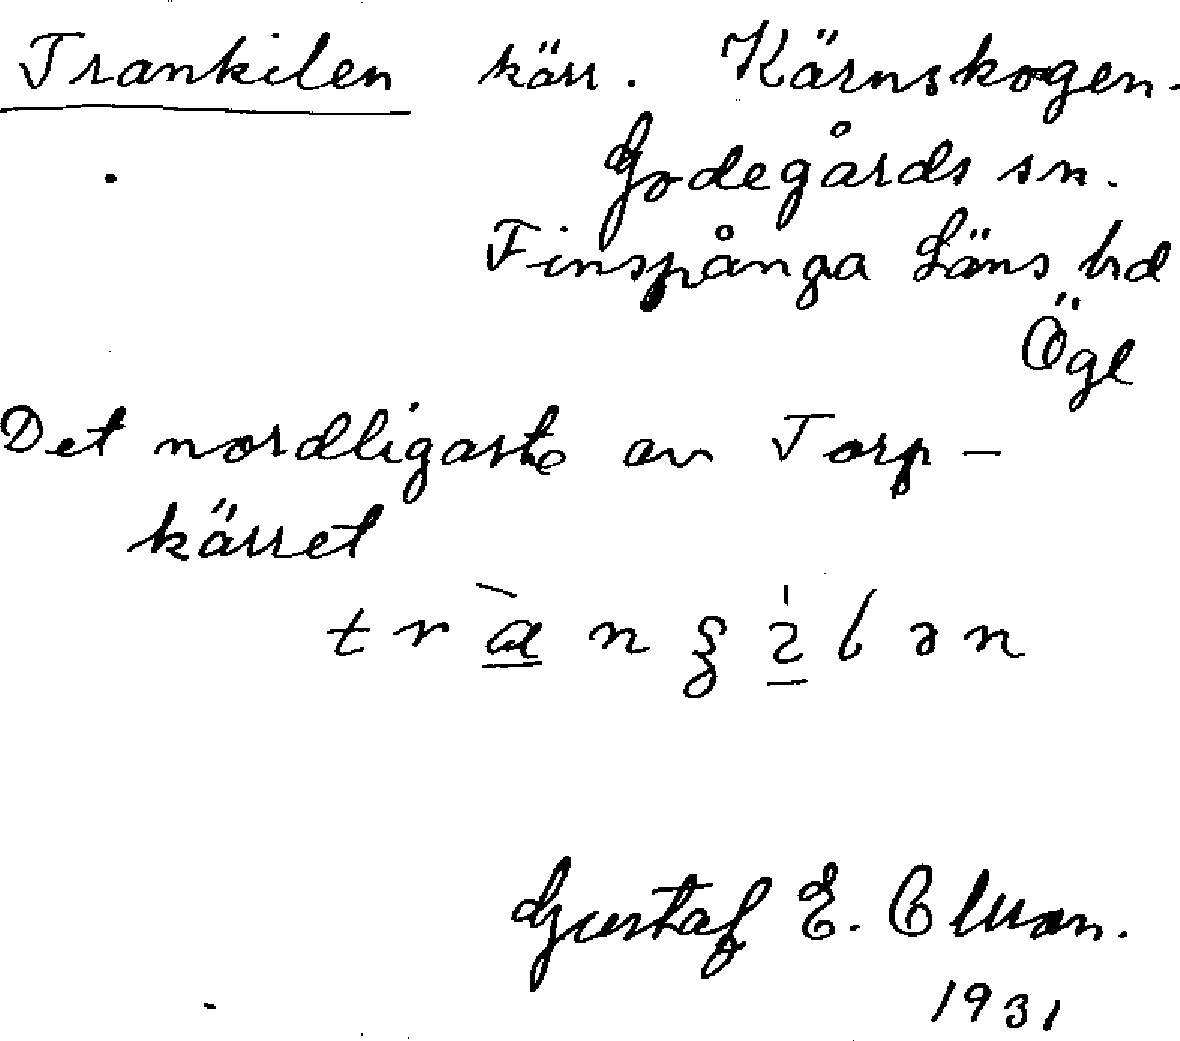 Trankilen kärr. Kärnskogen.
Godegårds sn.
Finspånga Läns hd
Ögl
Det nordligaste av Torp-
kärret
Gustaf E.
1931